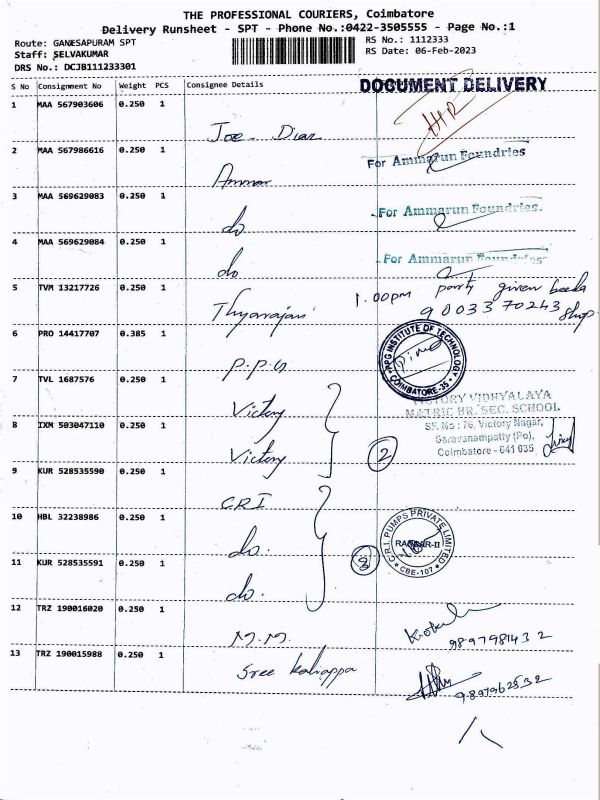 THE PROFESSIONAL COURIERS, Coimbatore
Delivery Runsheet - SPT - Phone No.:0422-3505555 - Page No.:1
Route: GANESAPURAM SPT
Staff: SELVAKUMAR
DRS No.: DCJB111233301
RS No.: 1112333
RS Date: 06-Feb-2023
S No Consignment No Weight PCS Consignee Details
DOCUMENT DELIVERY
1 MAA 567903606 0.250 1
Joe - Diaz
2 MAA 567986616 0.250 1
For Ammarun Foundries
Ammar
3 MAA 569629083 0.250 1
For Ammarun Foundries.
do
4 MAA 569629084 0.250 1
For Ammarun Foundries
do
5 TVM 13217726 0.250 1
1.00pm party given beeda shop
9003370243
Thyanrajan
6 PRO 14417707 0.385 1
PPG INSTITUTE OF TECHNOLOGY
COIMBATORE-35
P.P.G
7 TVL 1687576 0.250 1
VICTORY VIDHYALAYA
MATRIC HR. SEC. SCHOOL
SF. No : 76, Victory Nagar,
Saravanampatty (Po),
Coimbatore - 641 035
Victory
8 IXM 503047110 0.250 1
Victory
2
9 KUR 528535590 0.250 1
CRI
10 HBL 32238986 0.250 1
C.R.I. PUMPS PRIVATE LIMITED
CBE-107
do.
3
11 KUR 528535591 0.250 1
do.
12 TRZ 190016020 0.250 1
M.M.
9897981432
13 TRZ 190015988 0.250 1
Sree kaliappa
9897962532